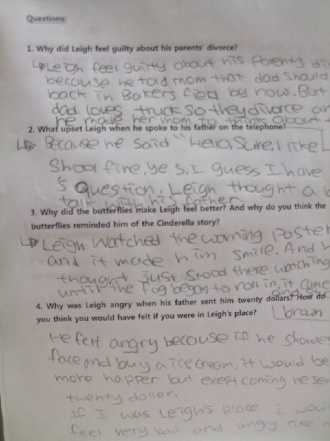 Questions:
1. Why did Leigh feel guilty about his parents' divorce?
Leigh feel guilty about his Parents di
because he told mom that dad should
back in Bakersfield by now. But
dad loves truck so they divorce an
he made her mom things about
2. What upset Leigh when he spoke to his father on the telephone?
Because he said "Hello, Sure, I like
Shool fine, yes, I guess I have
's question. Leigh thought a
talk with his father
3. Why did the butterflies make Leigh feel better? And why do you think the
butterflies reminded him of the Cinderella story?
Leigh watched the warning Poster
and it made him smile. And
thought just stood there watching
until the fog began to roll in, it came
and
4. Why was Leigh angry when his father sent him twenty dollars? How do
you think you would have felt if you were in Leigh's place?
brain
He felt angry because if he showe
face and buy a ice cream, it would be
more happer but exept coming he se
twenty doller.
If I was Leigh's place I wou
feel very bad and angry like